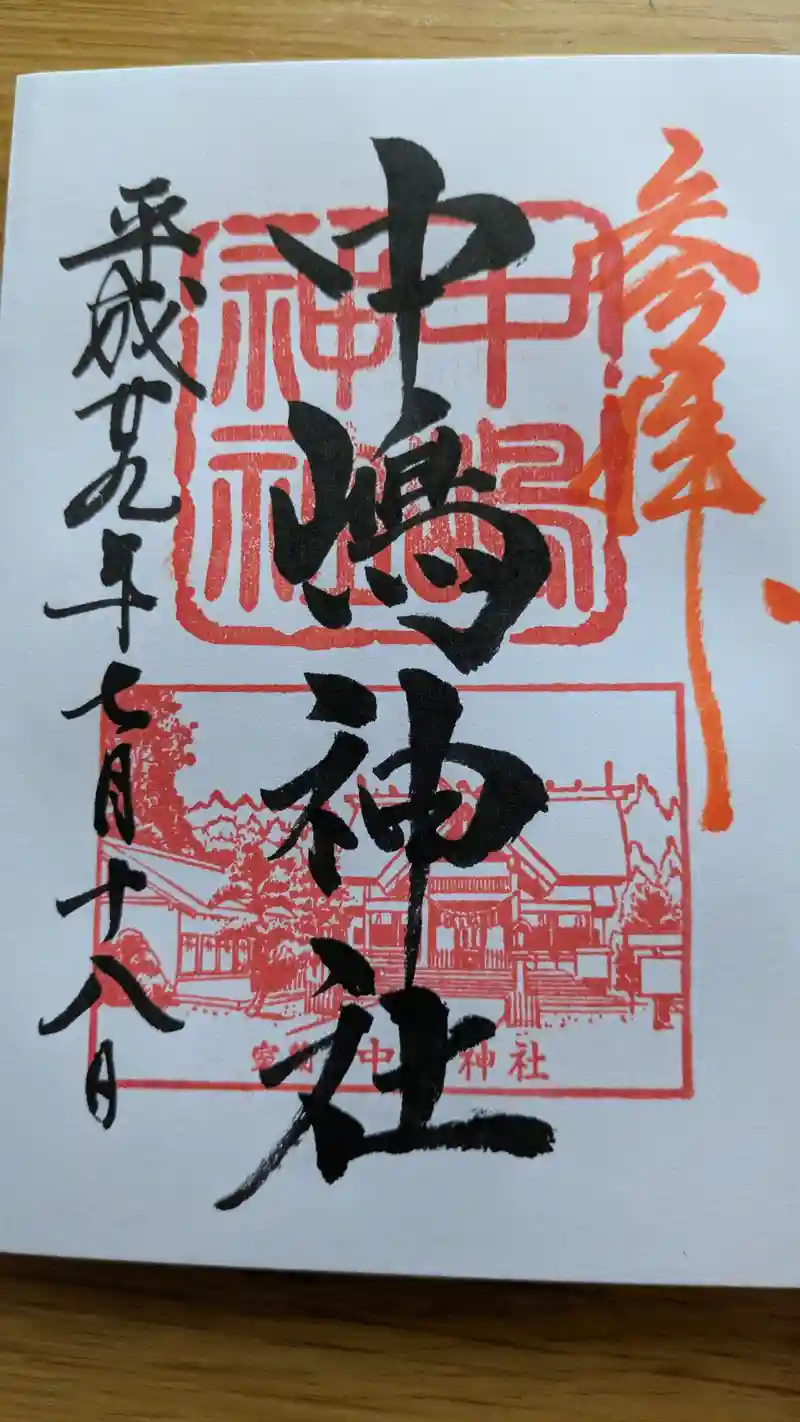 参拝
中嶋神社
中嶋神社
平成廿九年七月十八日
室蘭 中 神社